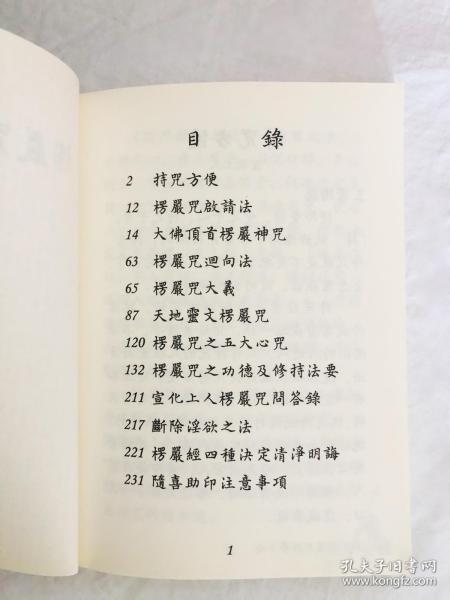 目錄
2 持咒方便
12 楞嚴咒啟請法
14 大佛頂首楞嚴神咒
63 楞嚴咒迴向法
65 楞嚴咒大義
87 天地靈文楞嚴咒
120 楞嚴咒之五大心咒
132 楞嚴咒之功德及修持法要
211 宣化上人楞嚴咒問答錄
217 斷除淫欲之法
221 楞嚴經四種決定清淨明誨
231 隨喜助印注意事項
1
孔夫子旧书网
www.kongfz.com